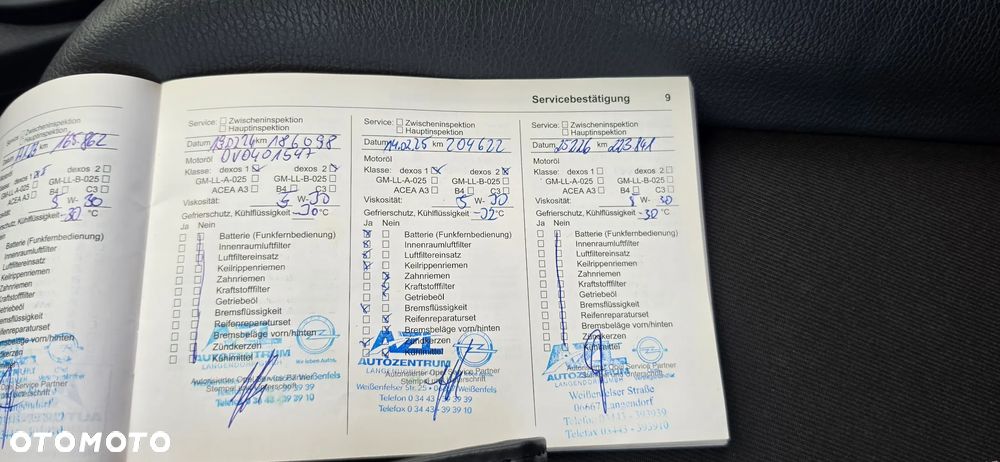 Servicebestätigung 9
Service: Zwischeninspektion
Hauptinspektion
165.862
dexos 1 dexos 2
GM-LL-A-025 GM-LL-B-025
ACEA A3 B4 C3
5 W- 30
Gefrierschutz, Kühlflüssigkeit -30 °C
Batterie (Funkfernbedienung)
Innenraumluftfilter
Luftfiltereinsatz
Keilrippenriemen
Zahnriemen
Kraftstofffilter
Getriebeöl
Bremsflüssigkeit
Reifenreparaturset
Bremsbeläge vorn/hinten
Zündkerzen
Kühlmittel
Service: Zwischeninspektion
Hauptinspektion
Datum 19.02.24 km 186098
Motoröl OV0401547
Klasse: dexos 1 dexos 2
GM-LL-A-025 GM-LL-B-025
ACEA A3 B4 C3
Viskosität: 5 W- 30
Gefrierschutz, Kühlflüssigkeit -30 °C
Ja Nein
Batterie (Funkfernbedienung)
Innenraumluftfilter
Luftfiltereinsatz
Keilrippenriemen
Zahnriemen
Kraftstofffilter
Getriebeöl
Bremsflüssigkeit
Reifenreparaturset
Bremsbeläge vorn/hinten
Zündkerzen
Kühlmittel
AUTOZENTRUM
Service: Zwischeninspektion
Hauptinspektion
Datum 14.02.25 km 204622
Motoröl
Klasse: dexos 1 dexos 2
GM-LL-A-025 GM-LL-B-025
ACEA A3 B4 C3
Viskosität: 5 W- 30
Gefrierschutz, Kühlflüssigkeit -32 °C
Ja Nein
Batterie (Funkfernbedienung)
Innenraumluftfilter
Luftfiltereinsatz
Keilrippenriemen
Zahnriemen
Kraftstofffilter
Getriebeöl
Bremsflüssigkeit
Reifenreparaturset
Bremsbeläge vorn/hinten
Zündkerzen
Kühlmittel
AZL
AUTOZENTRUM
Autorisierter Opel Service Partner
Stempel und Unterschrift
Weißenfelser Str. 25 Weißenfels
Telefon 0 34 43 - 39 39 39
Telefax 0 34 43 - 39 39 10
Service: Zwischeninspektion
Hauptinspektion
Datum km 223841
Motoröl
Klasse: dexos 1 dexos 2
GM-LL-A-025 GM-LL-B-025
ACEA A3 B4 C3
Viskosität: 5 W- 30
Gefrierschutz, Kühlflüssigkeit -30 °C
Ja Nein
Batterie (Funkfernbedienung)
Innenraumluftfilter
Luftfiltereinsatz
Keilrippenriemen
Zahnriemen
Kraftstofffilter
Getriebeöl
Bremsflüssigkeit
Reifenreparaturset
Bremsbeläge vorn/hinten
Zündkerzen
Kühlmittel
AUTOZENTRUM
Weißenfelser Straße
06667 Langendorf
Telefon 03443 - 393939
Telefax 03443 - 393910
OTOMOTO